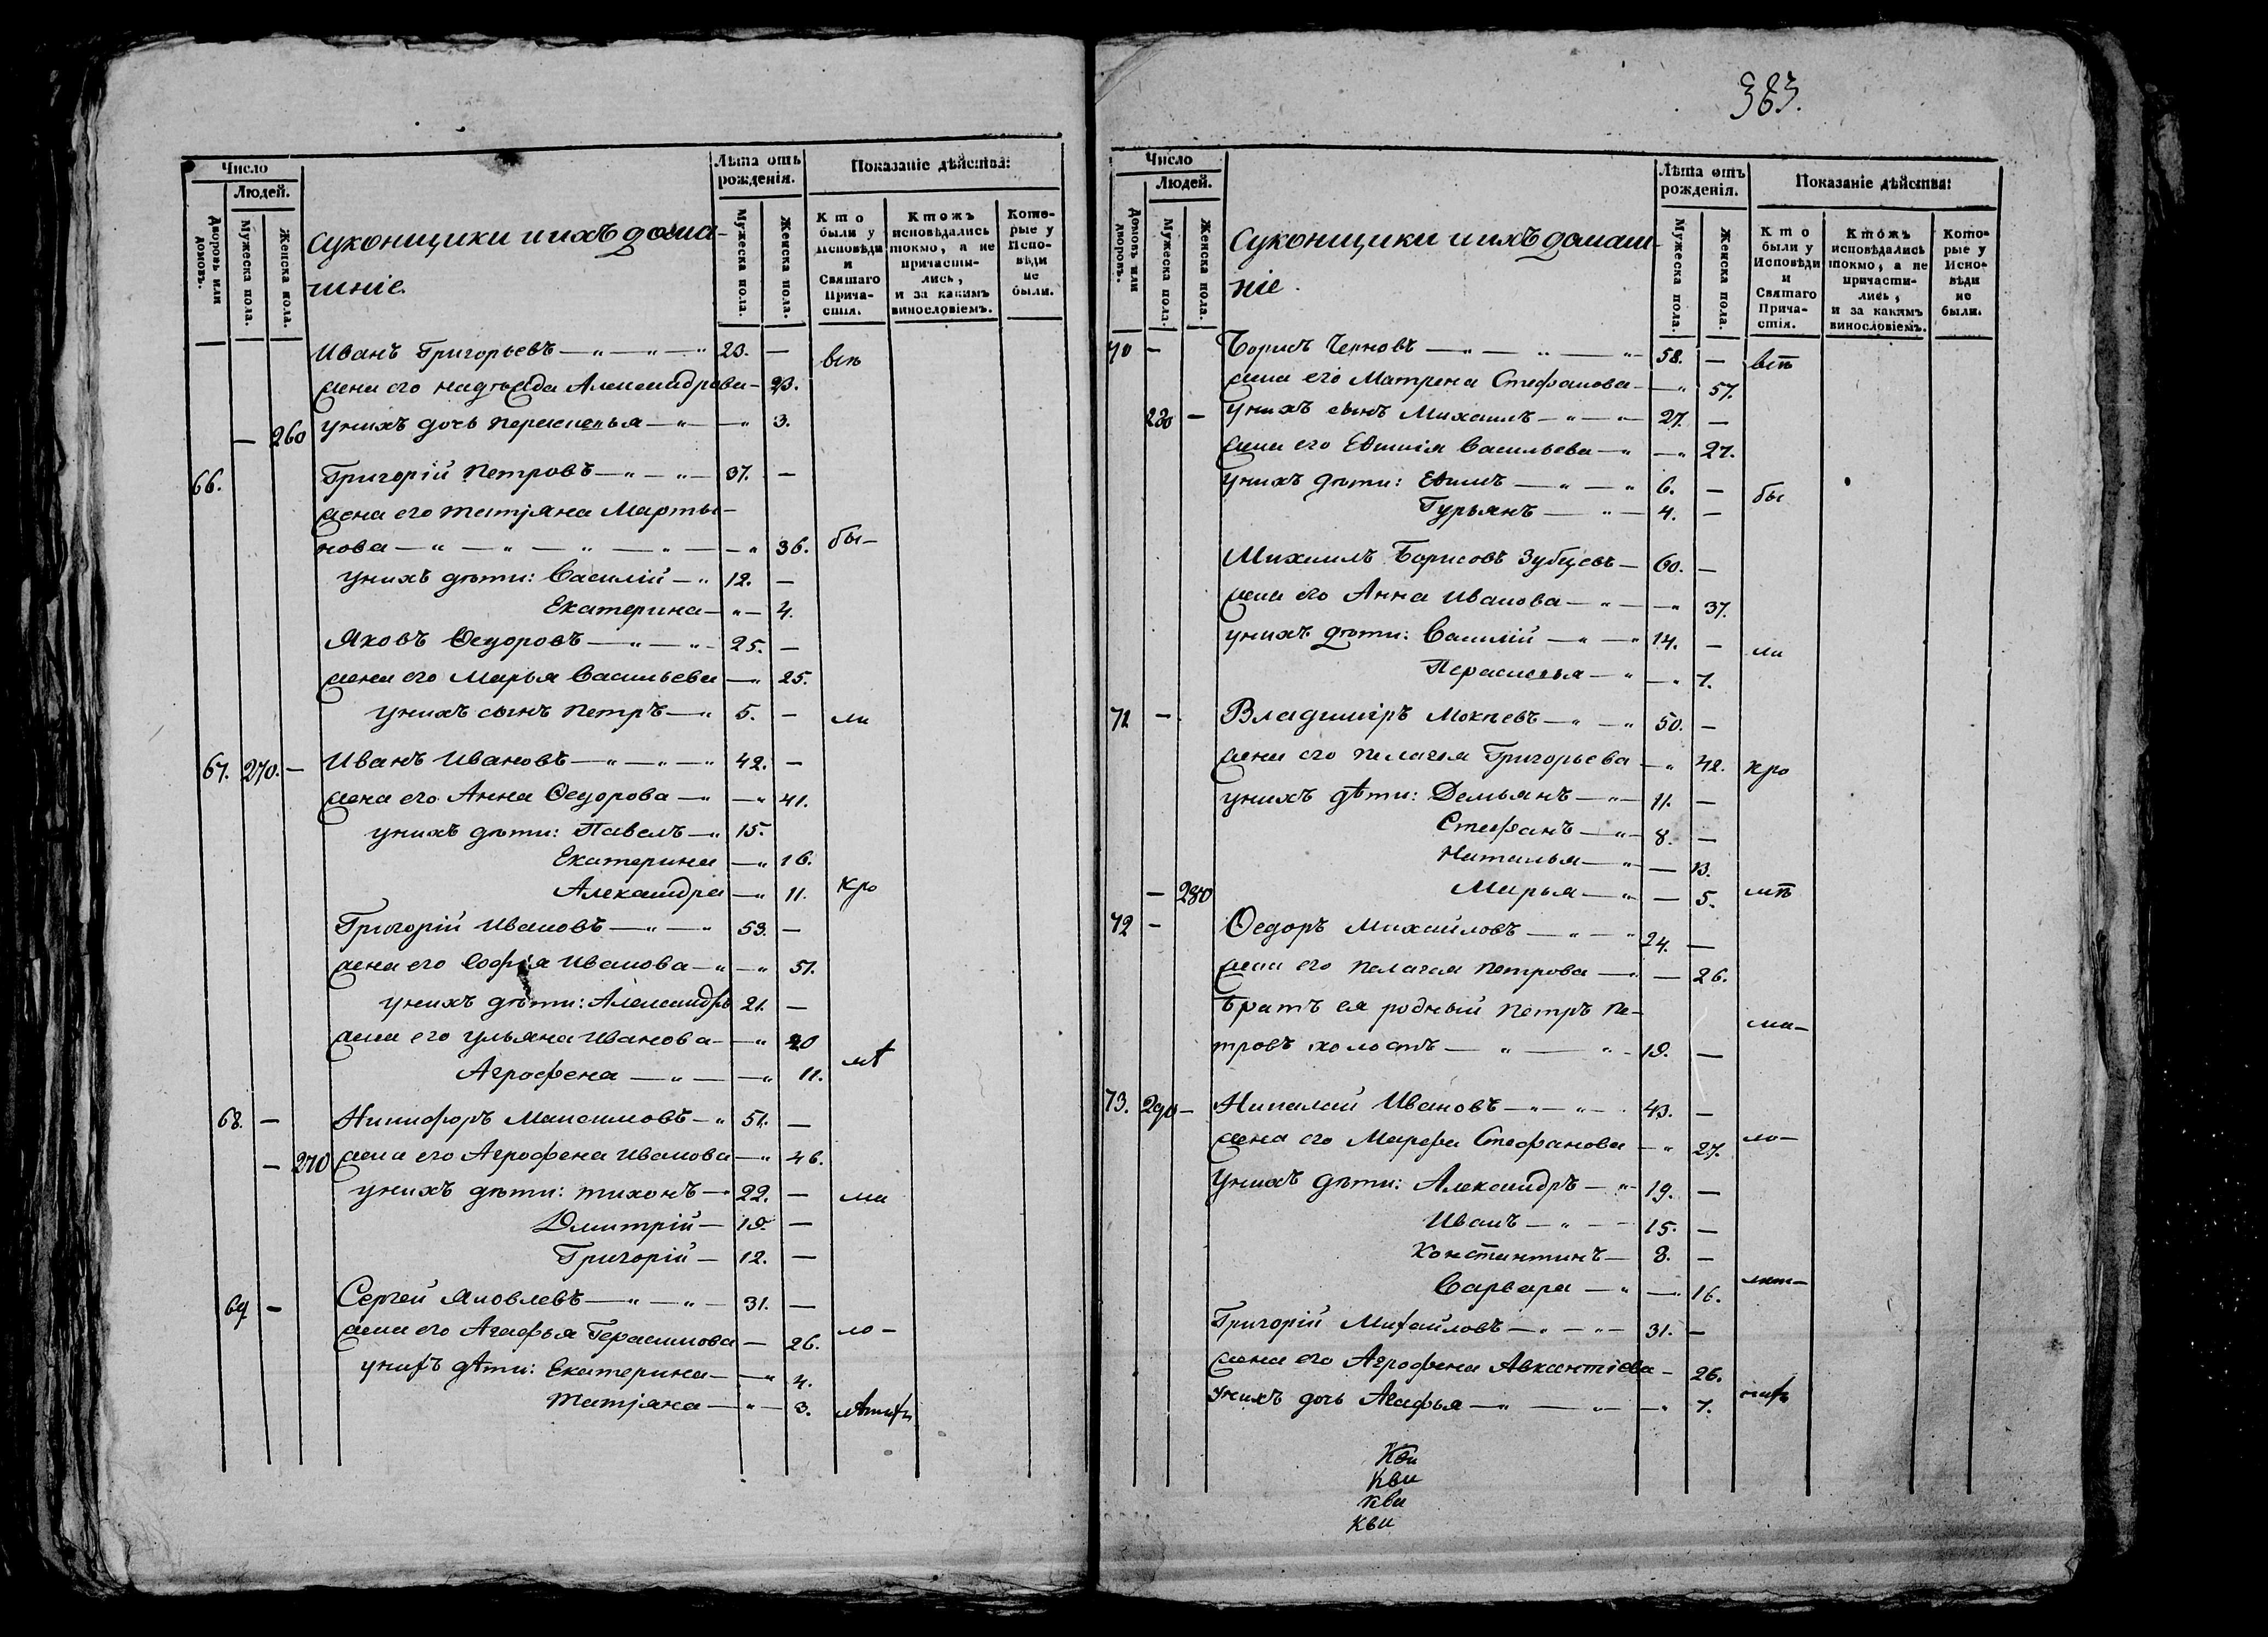 383.
Число
Людей.
Дворовъ или домовъ.
Мужеска пола.
Женска пола.
Суконщики и ихъ дома-
шніе.
Лѣта отъ рожденія.
Мужеска пола.
Женска пола.
Показаніе дѣйства:
Кто были у Исповѣди и Святаго Прича-стія.
Ктожъ исповѣдались токмо, а не причасти-лись, и за какимъ винословіемъ.
Кото-рые у Испо-вѣди не были.
Иванъ Григорьевъ — „ — „ — „ 23. — всѣ
жена его Надежда Александрова — 23.
— 260 у нихъ дочь Парасковья — „ — „ 3.
66. Григорій Петровъ — „ — „ — 37. —
жена его Татіяна Марты-
нова — „ — „ — „ — „ — „ 36. бы-
у нихъ дѣти: Василій — „ 12. —
Екатерина — „ — 4.
Яковъ Ѳедоровъ — „ — „ - 25. —
жена его Марья Васильева — „ 25.
у нихъ сынъ Петръ — „ 5. — ли
67. 270. — Иванъ Ивановъ — „ — „ — „ 42. —
жена его Анна Ѳедорова — „ — „ 41.
у нихъ дѣти: Павелъ — „ 15.
Екатерина — „ 16.
Александра — „ 11. кро
Григорій Ивановъ — „ — „ 53. —
жена его Софія Иванова — „ — „ 51.
у нихъ дѣти: Александръ 21. —
жена его Ульяна Иванова — — „ 20
Агрофена — „ — — „ 11. мѣ
68. — Никифоръ Максимовъ — „ 51. —
— 270 жена его Агрофена Иванова — „ 46.
у нихъ дѣти: Тихонъ — „ 22. — ма
Дмитрій — 19. —
Григорій — 12. —
69 — Сергей Яковлевъ — „ — „ — 31. —
жена его Агафья Герасимова — 26. ло-
у нихъ дѣти: Екатерина — — „ 4.
Татіяна — „ — 3. лѣтнихъ
Число
Людей.
Домовъ или дворовъ.
Мужеска пола.
Женска пола.
Суконщики и ихъ домаш-
ніе.
Лѣта отъ рожденія.
Мужеска пола.
Женска пола.
Показаніе дѣйства:
Кто были у Исповѣди и Святаго Прича-стія.
Ктожъ исповѣдались токмо, а не причасти-лись, и за какимъ винословіемъ.
Кото-рые у Испо-вѣди не были.
70 — Борисъ Черновъ — „ — „ — „ 58. — всѣ
жена его Матрена Стефанова — — „ 57.
280 — у нихъ сынъ Михаилъ — „ — „ 27. —
жена его Евфимія Васильева — „ — „ 27.
у нихъ дѣти: Евфимъ — „ — „ 6. — бы
Гурьянъ — „ — 4. —
Михаилъ Борисовъ Зубцовъ — 60. —
жена его Анна Иванова — „ — — „ 37.
у нихъ дѣти: Василій — „ — „ 14. — ли
Парасковья — „ — „ 7.
71 — Владиміръ Мокіевъ — „ — „ 50. —
жена его Пелагея Григорьева — „ 42. кро
у нихъ дѣти: Демьянъ — „ — 11. —
Стефанъ — „ — 8. —
Наталья — „ — 13.
— 280 Марья — „ — 5. мѣ
72 — Ѳедоръ Михайловъ — „ — „ 24. —
жена его Пелагея Петрова — „ — 26.
братъ ея родный Петръ Пе-
тровъ холостъ — „ — „ - 19. — ма-
73. 290 — Николай Ивановъ — „ — „ — 43. —
жена его Марфа Стефанова — „ 27. ло-
у нихъ дѣти: Александръ — „ — 19. —
Иванъ — „ — 15. —
Константинъ — 8. —
Варвара — „ — „ 16. лѣт-
Григорій Михайловъ — „ — „ — 31. —
жена его Агрофена Авксентіева — 26.
у нихъ дочь Агафья — „ — „ — „ 7. нихъ